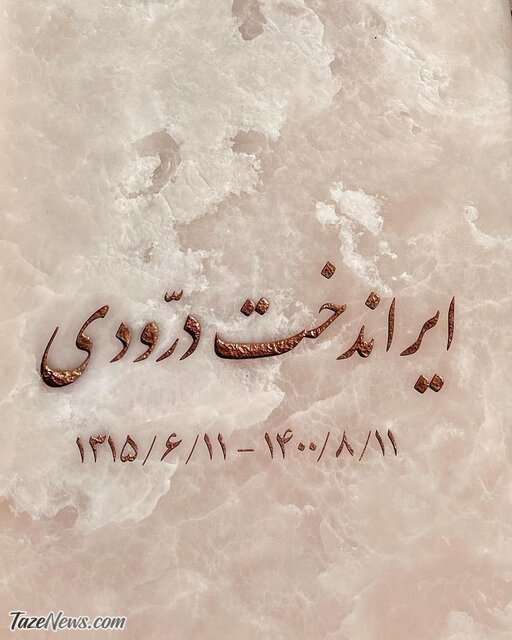 ایراندخت درّودی
۱۳۱۵/۶/۱۱ – ۱۴۰۰/۸/۱۱
TazeNews.com